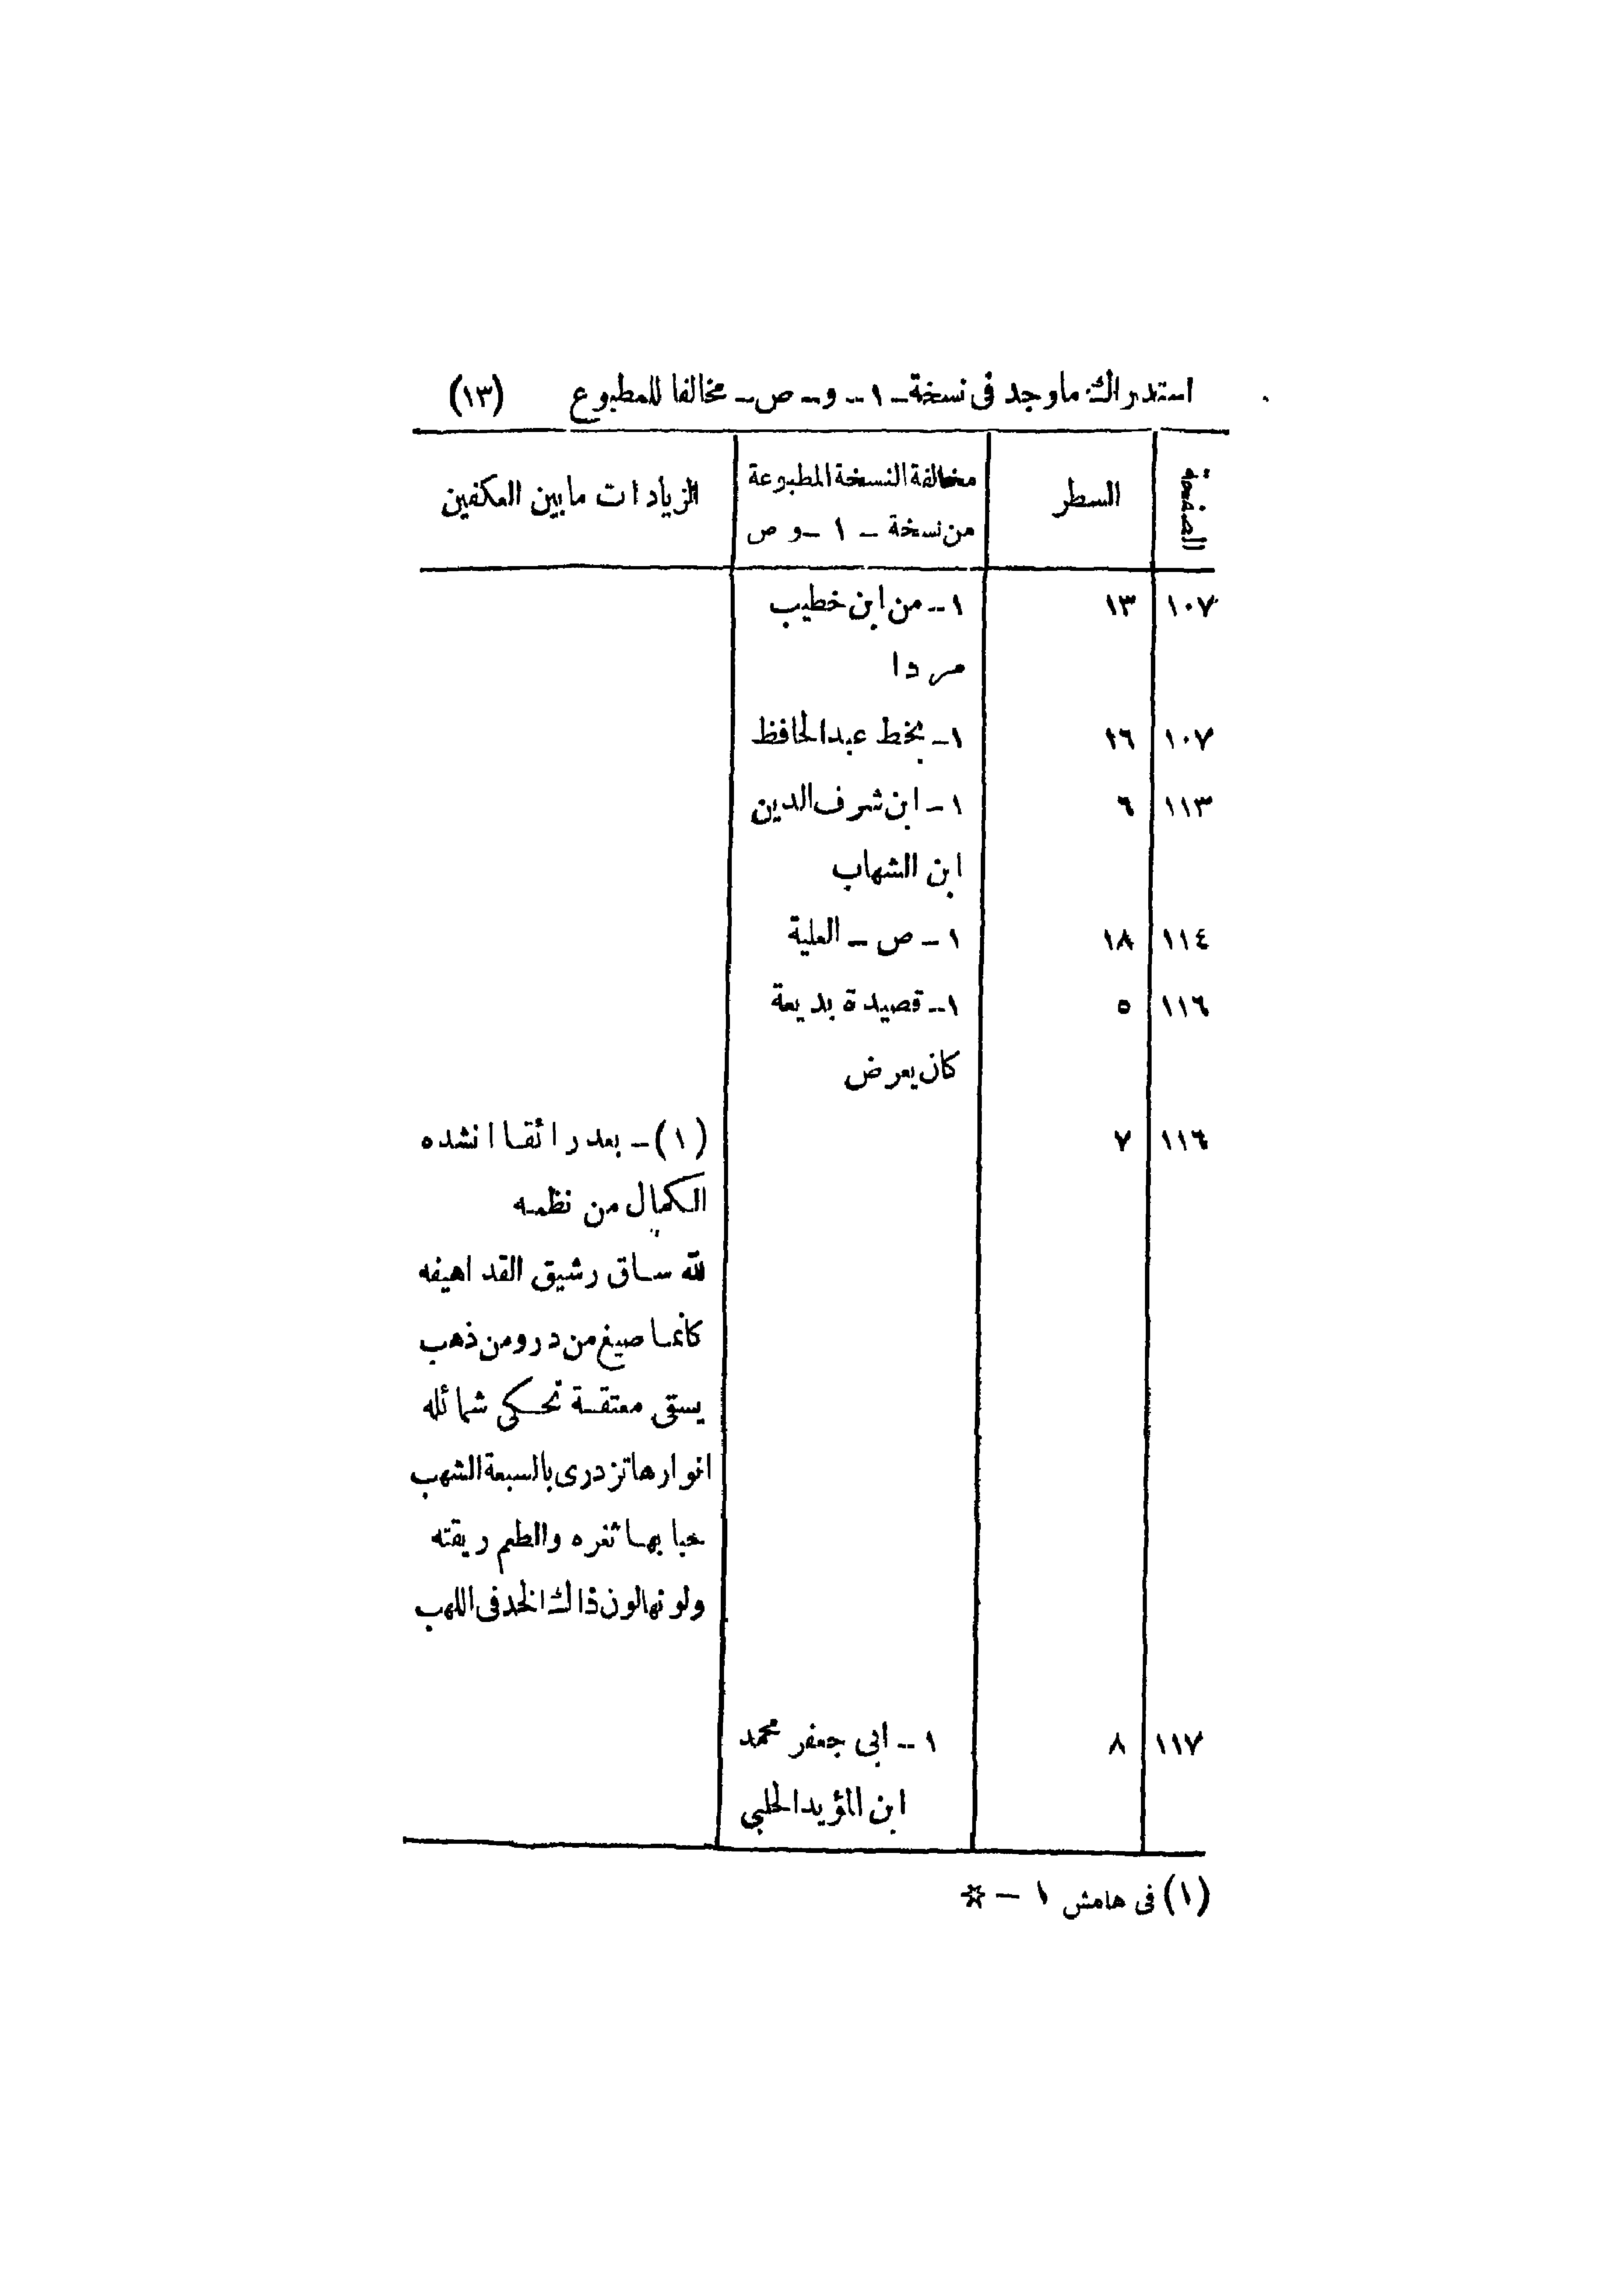 استدراك ما وجد فى نسخة - ١ - و - ص - مخالفا للمطبوع (١٣)
الصفحة السطر مخالفة النسخة المطبوعة الزيادات ما بين العكفين
من نسخة - ١ - و ص
١٠٧ ١٣ ١ - من ابن خطيب
مردا
١٠٧ ١٦ ١ - بخط عبد الحافظ
١١٣ ٦ ١ - ابن شرف الدين
ابن الشهاب
١١٤ ١٨ ١ - ص - العلية
١١٦ ٥ ١ - قصيدة بديعة
كان يعرض
١١٦ ٧ (١) - بعد رائقا انشده
الكمال من نظمه
لله ساق رشيق القد اهيفه
كأنما صيغ من در ومن ذهب
يسقى معتقة تحكى شمائله
انوارها تزدرى بالسبعة الشهب
حبابها ثغره والطعم ريقته
ولونها لون ذاك الخد فى اللهب
١١٧ ٨ ١ - ابى جعفر محمد
ابن المؤيد الحلبي
(١) فى هامش ١ - ☆